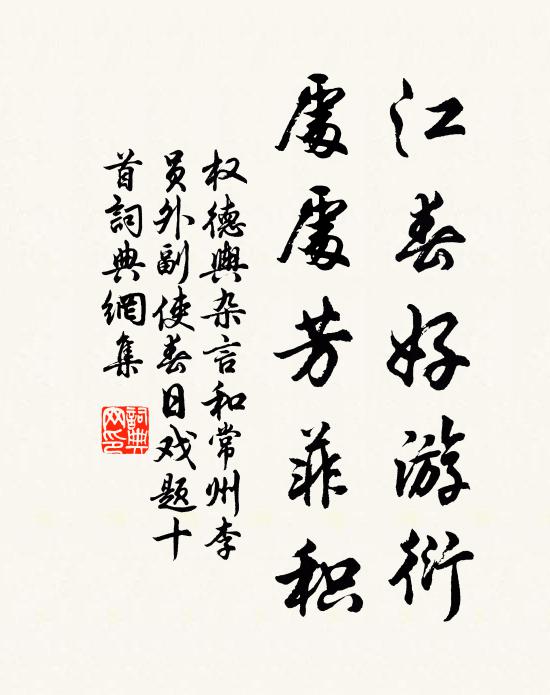 江春好游衍
處處芳菲积
权德輿杂言和常州李
员外副使春日戏题十
首詞典網集
詞典
网印